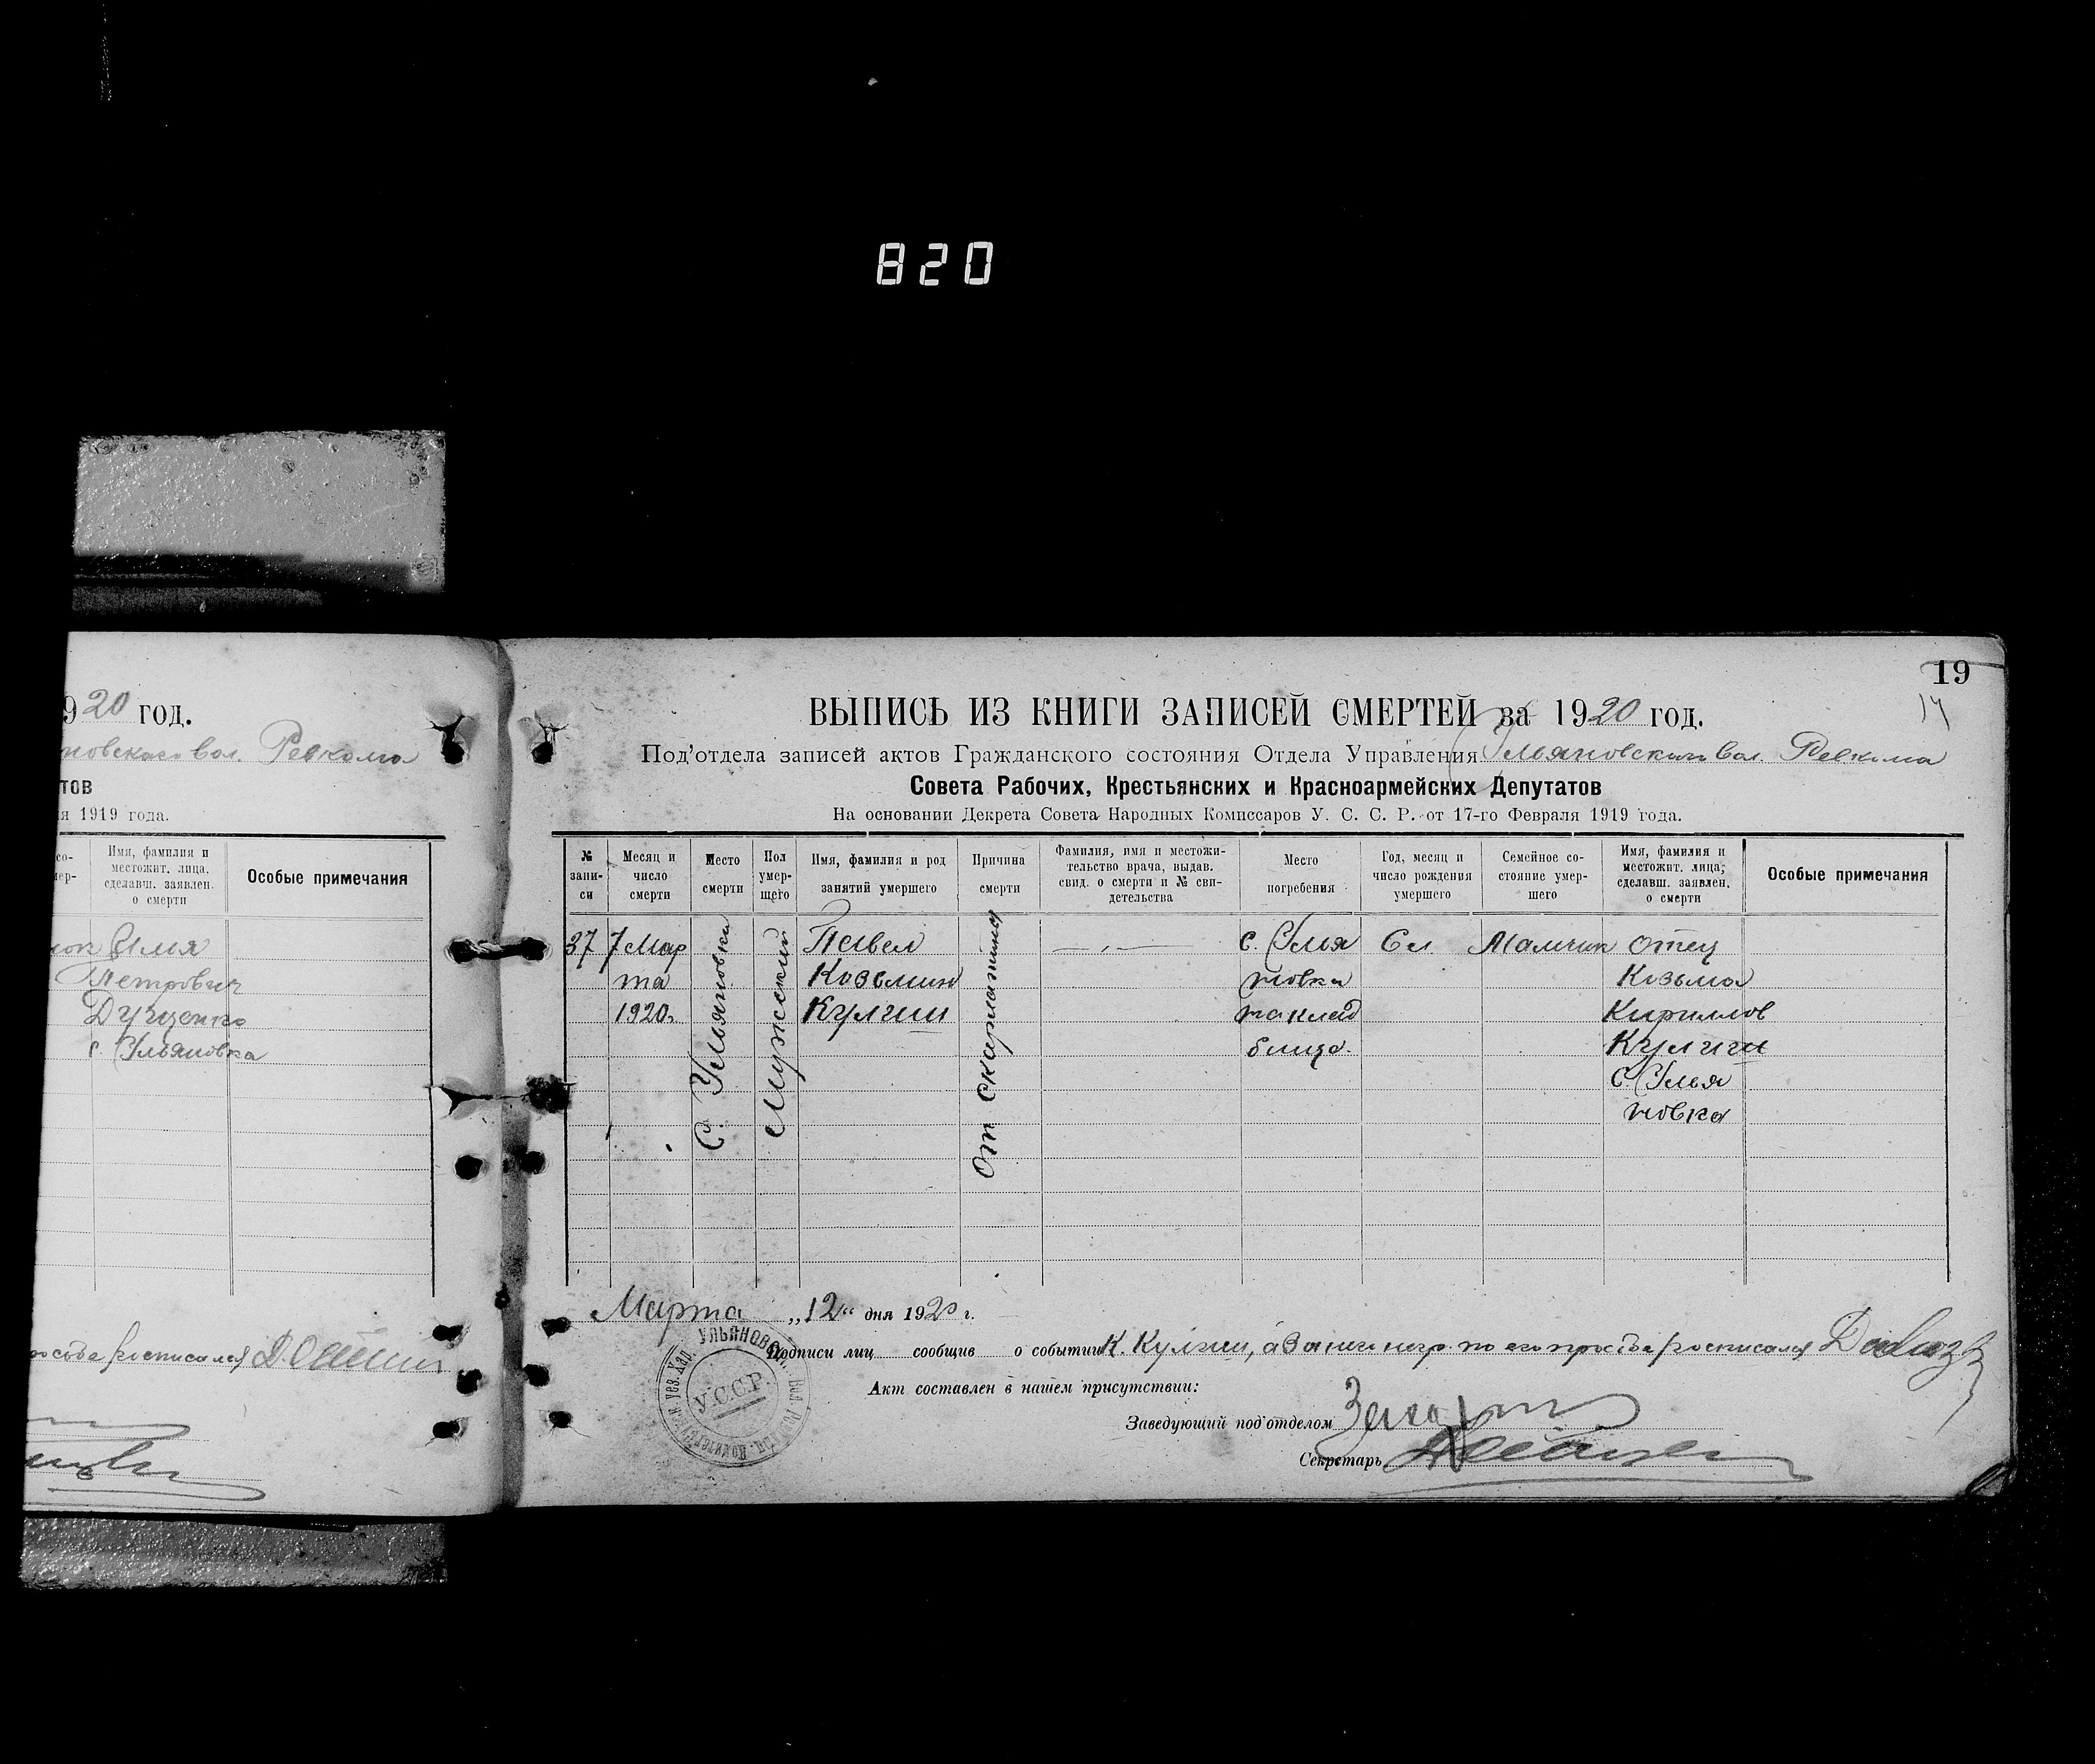 820
920 год.
новского вол. Ревкома
тов
я 1919 года.
Имя, фамилия и
местожит. лица,
сделавш. заявлен.
о смерти
Особые примечания
Илья
Петрович
с. Ульяновка
росписался
19
14
ВЫПИСЬ ИЗ КНИГИ ЗАПИСЕЙ СМЕРТЕЙ за 1920 год.
Под'отдела записей актов Гражданского состояния Отдела Управления Ульяновского Вол. Ревкома
Совета Рабочих, Крестьянских и Красноармейских Депутатов
На основании Декрета Совета Народных Комиссаров У. С. С. Р. от 17-го Февраля 1919 года.
№ запи-си
Месяц и число смерти
Место смерти
Пол умер-щего
Имя, фамилия и род занятий умершего
Причина смерти
Фамилия, имя и местожи-тельство врача, выдав. свид. о смерти и № сви-детельства
Место погребения
Год, месяц и число рождения умершего
Семейное со-стояние умер-шего
Имя, фамилия и местожит. лица, сделавш. заявлен. о смерти
Особые примечания
37
7 Мар
та
1920г.
С. Ульяновка
Мужский
Павел
Козьмин
Кулгин
От Скарлатины
с. Улья
новка
на клад
бище.
6 л
Мальчик
отец
Козьма
Кириллов
Кулгин
с. Улья
новка
Марта „12“ дня 1920 г.
Подписи лиц сообщив о событии К. Кулгин, а за него негр. по его прозбе росписался
Акт составлен в нашем присутствии:
Заведующий под'отделом
Секретарь
У.С.С.Р.